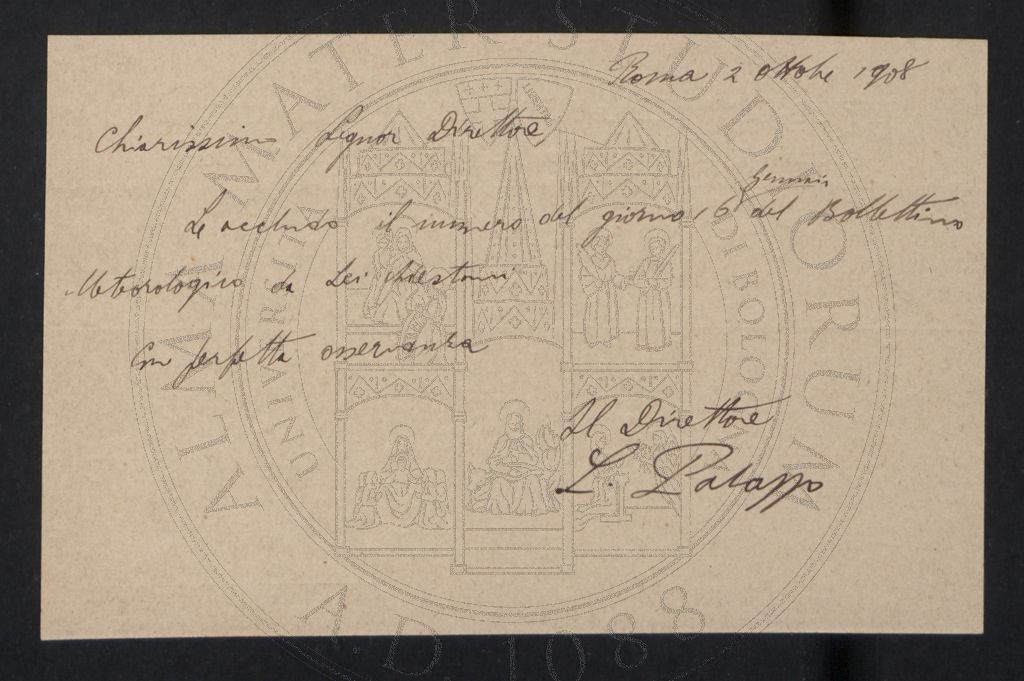 Roma 2 ottobre 1908
Chiarissimo Signor Direttore,
Gennaio
Le accludo il numero del giorno 16 del Bollettino
Meteorologico da Lei chiestomi
Con perfetta osservanza
Il Direttore
L. Palazzo
ALMA MATER STUDIORUM
A.D. 1088